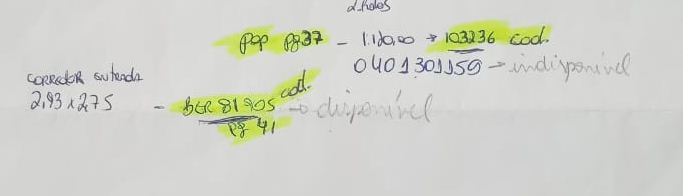 2 rolos
pop pg37 - 1.120,00 → 103236 cod.
0401301159 - indisponível
corredor entrada
2,93 x 2,75 - BER 81905 cod. → disponível
pg 41